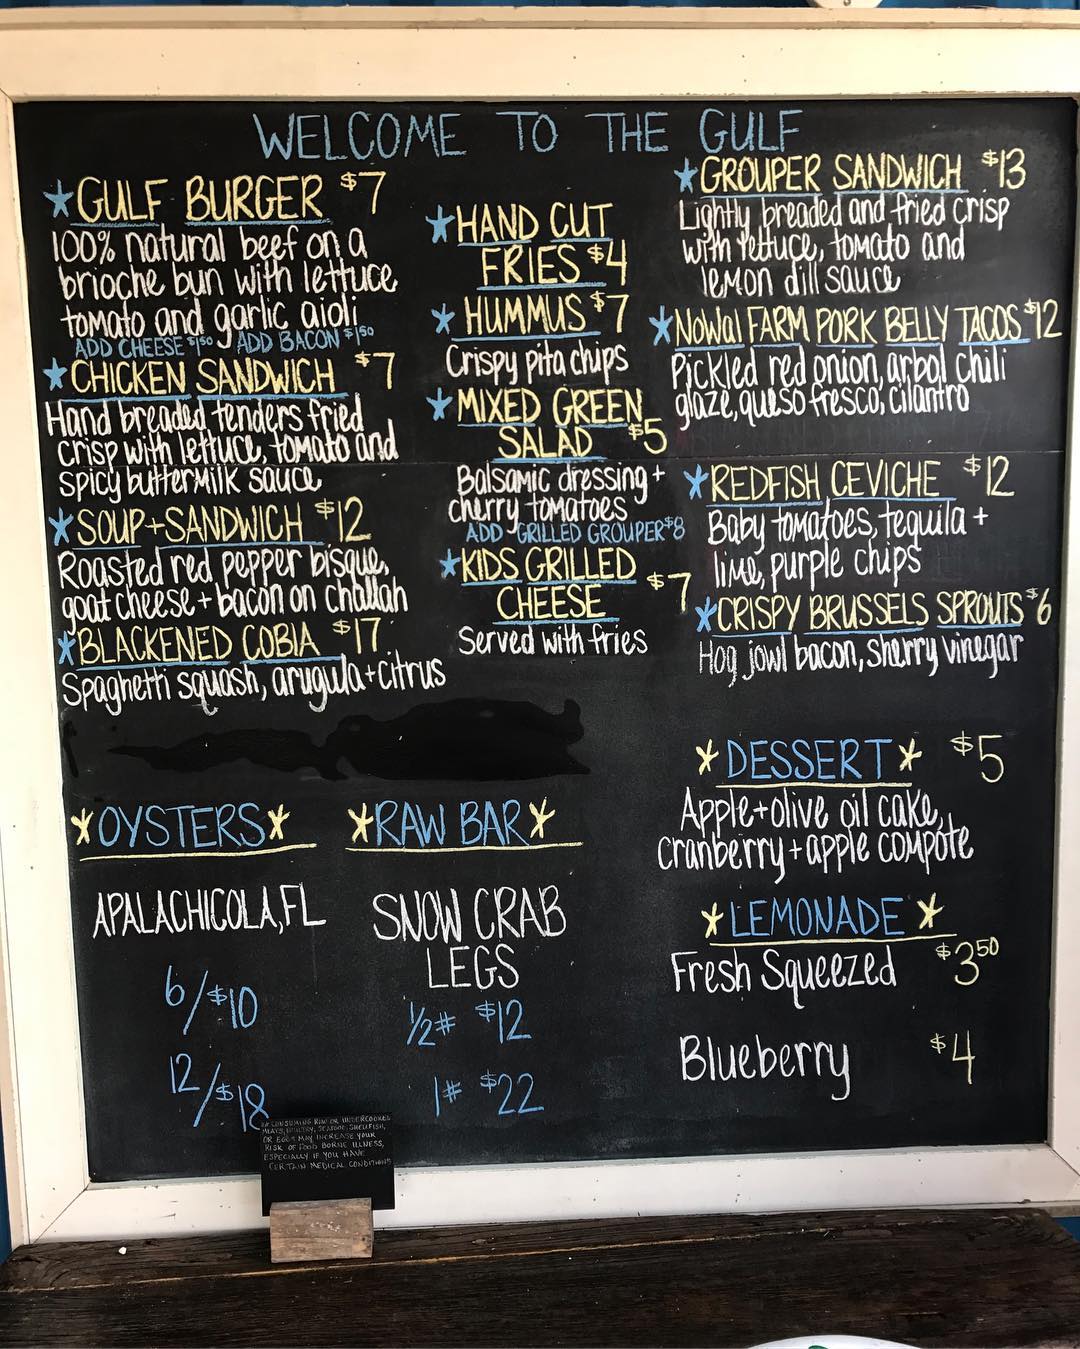 WELCOME TO THE GULF
*GULF BURGER $7
100% natural beef on a
brioche bun with lettuce
tomato and garlic aioli
ADD CHEESE $1.50 ADD BACON $1.50
*CHICKEN SANDWICH $7
Hand breaded tenders fried
crisp with lettuce, tomato and
spicy buttermilk sauce
*SOUP+SANDWICH $12
Roasted red pepper bisque,
goat cheese + bacon on challah
*BLACKENED COBIA $17
Spaghetti squash, arugula+citrus
*HAND CUT
FRIES $4
*HUMMUS $7
Crispy pita chips
*MIXED GREEN
SALAD $5
Balsamic dressing +
cherry tomatoes
ADD GRILLED GROUPER $8
*KIDS GRILLED
CHEESE $7
Served with fries
*GROUPER SANDWICH $13
Lightly breaded and fried crisp
with lettuce, tomato and
lemon dill sauce
*Nowal FARM PORK BELLY TACOS $12
Pickled red onion, arbol chili
glaze, queso fresco, cilantro
*REDFISH CEVICHE $12
Baby tomatoes, tequila +
lime, purple chips
*CRISPY BRUSSELS SPROUTS $6
Hog jowl bacon, sherry vinegar
*OYSTERS*
APALACHICOLA, FL
6/$10
12/$18
*RAW BAR*
SNOW CRAB
LEGS
1/2# $12
1# $22
*DESSERT* $5
Apple+olive oil cake,
cranberry + apple compote
*LEMONADE*
Fresh Squeezed $3.50
Blueberry $4
CONSUMING RAW OR UNDERCOOKED
MEATS, POULTRY, SEAFOOD, SHELLFISH,
OR EGGS MAY INCREASE YOUR
RISK OF FOOD BORNE ILLNESS,
ESPECIALLY IF YOU HAVE
CERTAIN MEDICAL CONDITIONS